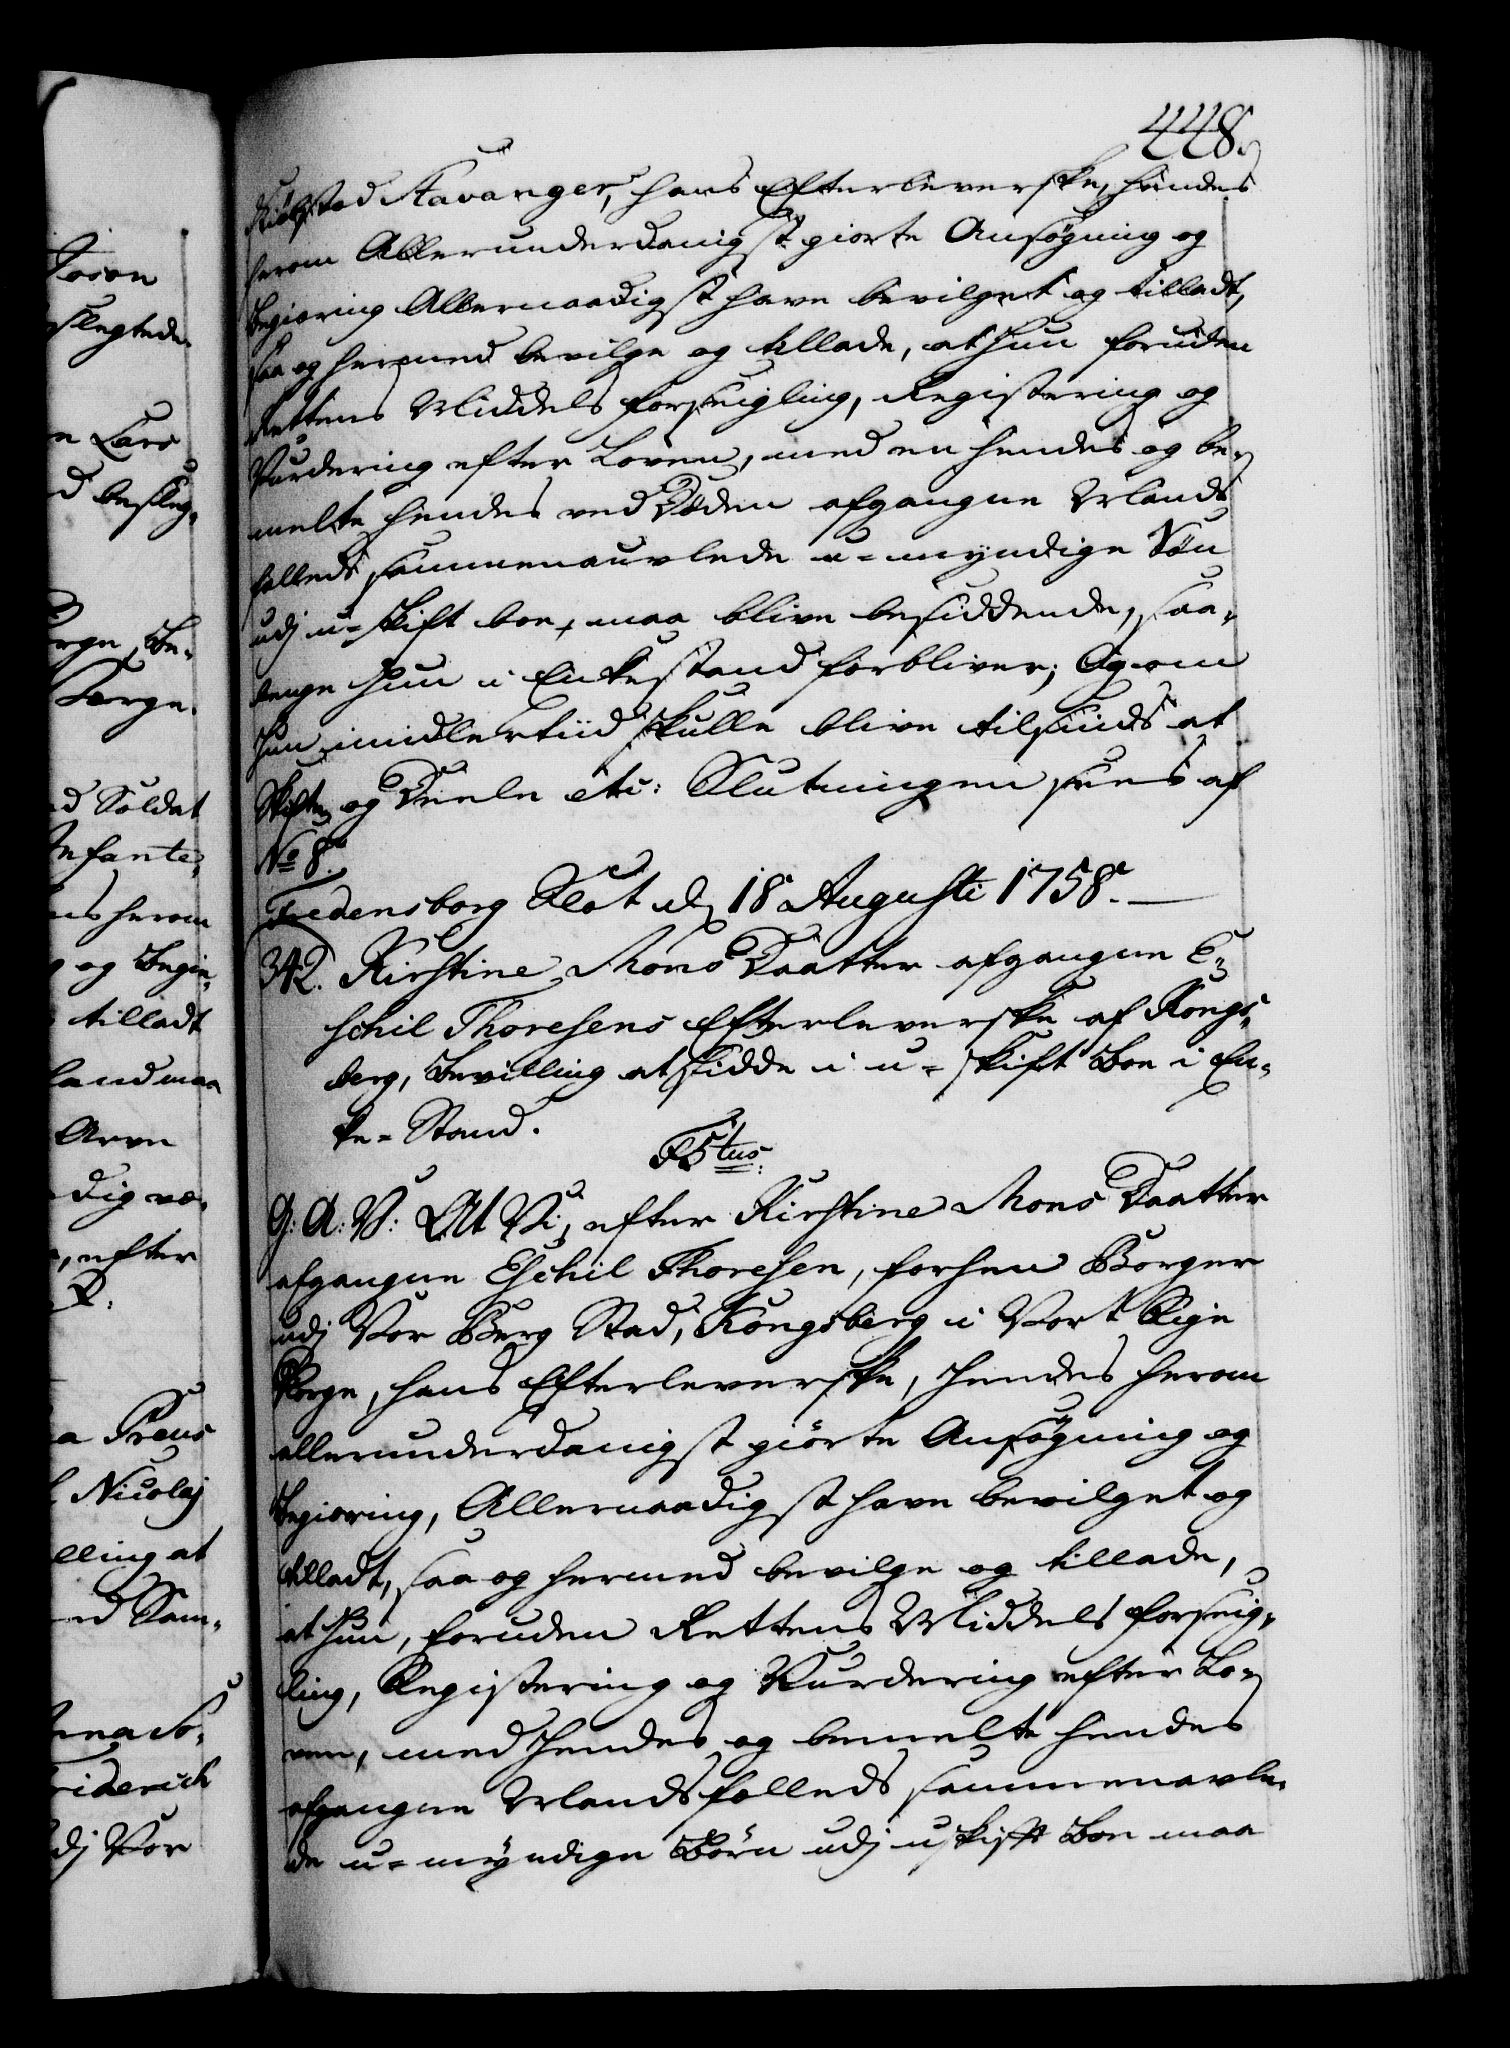 448.
Kiøbsted Stavanger, hans Efterleverske, hendes
herom Allerunderdanigst giorte Ansøgning og
Begiæring Allernaadigst have bevilget og tilladt,
saa og hermed bevilge og tillade, at hun foruden
Rettens Middels Forseigling, Registering og
Vurdering efter Loven, med en hendes og be-
melte hendes ved Døden afgangne Mands
felleds sammenauvlede u-myndige Søn
udj u-skift boe, maa blive besiddende, saa-
lenge hun i Enkestand forbliver; Og om
hun imidlertiid skulle blive tilsinds at
Skifte og Deele etc: Slutningen sees af
No 8.
Fredensborg Slot d. 18 Augusti 1758.
342. Kirstine Mons Daatter afgangne E-
schil Thoresens Efterleverske af Kongs-
berg, Bevilling at sidde i u-skift Boe i En-
ke-Stand.
F5tus:
G: A: V: At Vi, efter Kirstine Mons Daatter
afgangne Eschil Thoresen, forhen Borger
udj Vor Berg Stad, Kongsberg i Vort Rige
Norge, hans Efterleverske, hendes herom
allerunderdanigst giorte Ansøgning og
Begiæring, Allernaadigst have bevilget og
tilladt, saa og hermed bevilge og tillade,
at hun, foruden Rettens Middels Forseig-
ling, Registering og Vurdering efter Lo-
ven, med hendes og bemelte hendes
afgangne Mands felleds sammenavle-
de u-myndige Børn udj uskift Boe maa